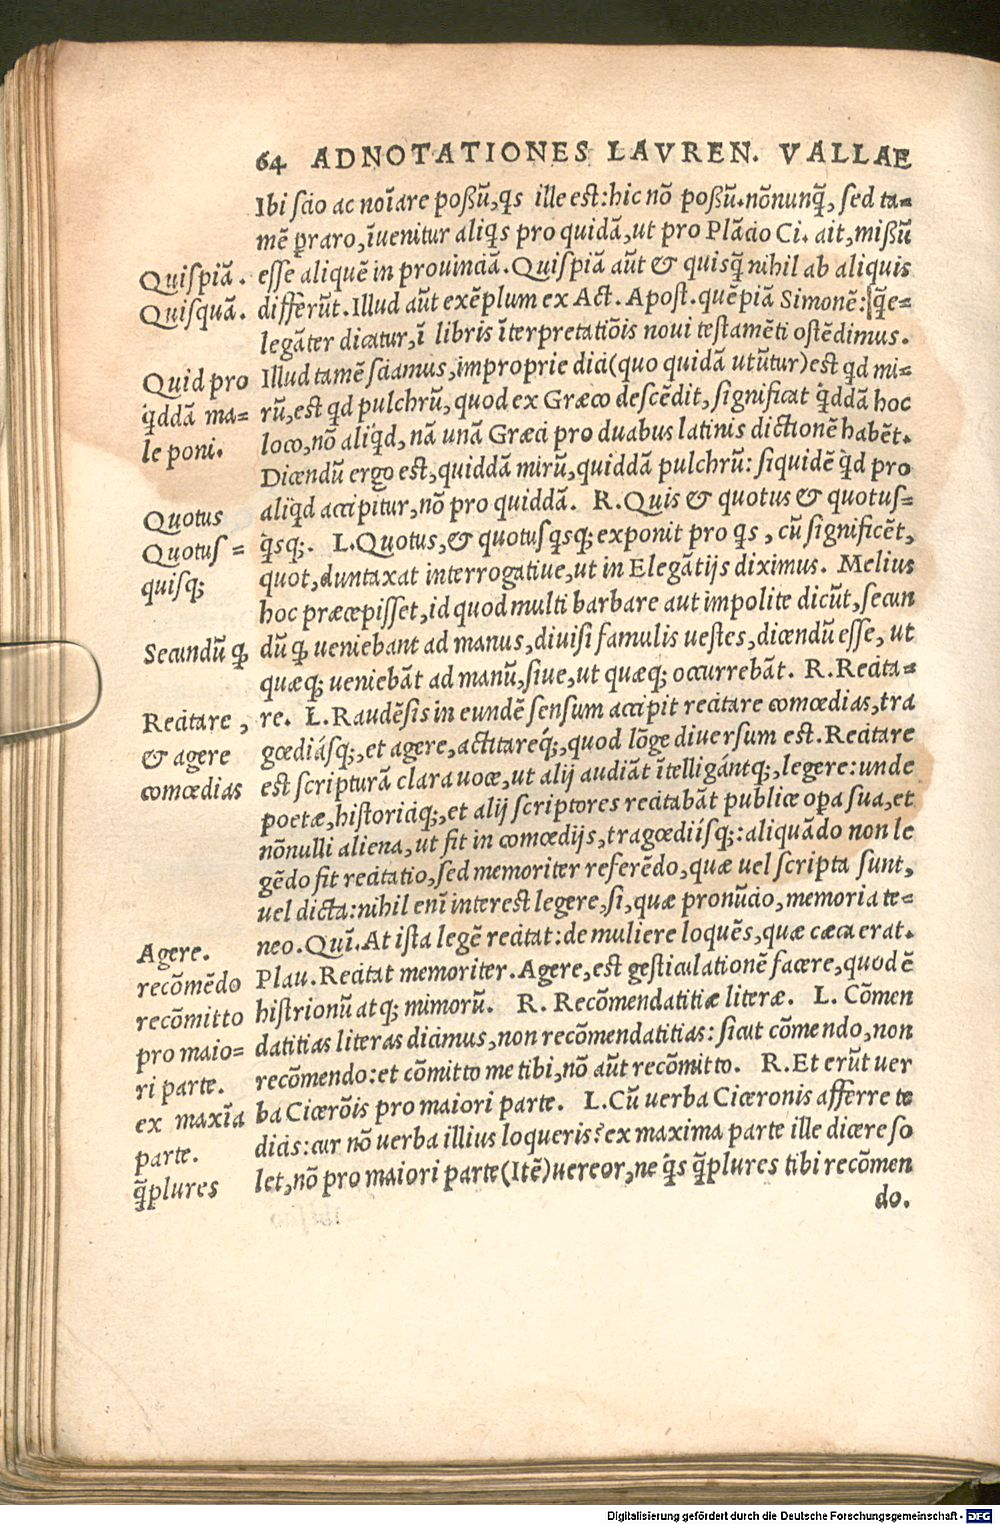 64 ADNOTATIONES LAVREN. VALLAE
Ibi scio ac noĩare poßũ, q̃s ille est: hic nõ poßũ. nõnunq̃, sed ta-
mẽ ꝑraro, ĩuenitur aliq̃s pro quidã, ut pro Plãcio Ci. ait, mißũ
Quispiã. esse aliquẽ in prouincia. Quispiã aũt & quisq̃ nihil ab aliquis
Quisquã. differũt. Illud aũt exẽplum ex Act. Apost. quẽpiã Simonẽ: q̃e-
legãter dicatur, ĩ libris ĩterpretatiõis noui testamẽti ostẽdimus.
Quid pro Illud tamẽ sciamus, improprie dici (quo quidã utũtur) est qd mi-
q̇ddã ma- rũ, est qd pulchrũ, quod ex Græco descẽdit, significat q̇ddã hoc
le poni. loco, nõ aliq̇d, nã unã Græci pro duabus latinis dictionẽ habẽt.
Dicendũ ergo est, quiddã mirũ, quiddã pulchrũ: siquidẽ q̇d pro
Quotus aliq̇d accipitur, nõ pro quiddã. R. Quis & quotus & quotus-
Quotus- q̇sq;. L. Quotus, & quotusq̇sq; exponit pro q̇s, cũ significẽt,
quisq; quot, duntaxat interrogatiue, ut in Elegãtijs diximus. Melius
hoc præcepisset, id quod multi barbare aut impolite dicũt, secun
Secundũ ꝙ dũ ꝙ ueniebant ad manus, diuisi famulis uestes, dicendũ esse, ut
quæq; ueniebãt ad manũ, siue, ut quæq; occurrebãt. R. Recita-
Recitare, re. L. Raudẽsis in eundẽ sensum accipit recitare comœdias, tra
& agere gœdiásq;, et agere, actitareq́;, quod lõge diuersum est. Recitare
comœdias est scripturã clara uoce, ut alij audiãt ĩtelligántq;, legere: unde
poetæ, historiciq;, et alij scriptores recitabãt publice oꝑa sua, et
nõnulli aliena, ut fit in comœdijs, tragœdiísq;: aliquãdo non le
gẽdo fit recitatio, sed memoriter referẽdo, quæ uel scripta sunt,
uel dicta: nihil enĩ interest legere, si, quæ pronũcio, memoria te-
Agere. neo. Quĩ. At ista legẽ recitat: de muliere loquẽs, quæ cæca erat.
recõmẽdo Plau. Recitat memoriter. Agere, est gesticulationẽ facere, quod ẽ
recõmitto histrionũ atq; mimorũ. R. Recõmendatitiæ literæ. L. Cõmen
pro maio- datitias literas dicimus, non recõmendatitias: sicut cõmendo, non
ri parte. recõmendo: et cõmitto me tibi, nõ aũt recõmitto. R. Et erũt uer
ex maxĩa ba Cicerõis pro maiori parte. L. Cũ uerba Ciceronis afferre te
parte. dicis: cur nõ uerba illius loqueris? ex maxima parte ille dicere so
q̃plures let, nõ pro maiori parte (Itẽ) uereor, ne q́s q̃plures tibi recõmen
do.
Digitalisierung gefördert durch die Deutsche Forschungsgemeinschaft - DFG